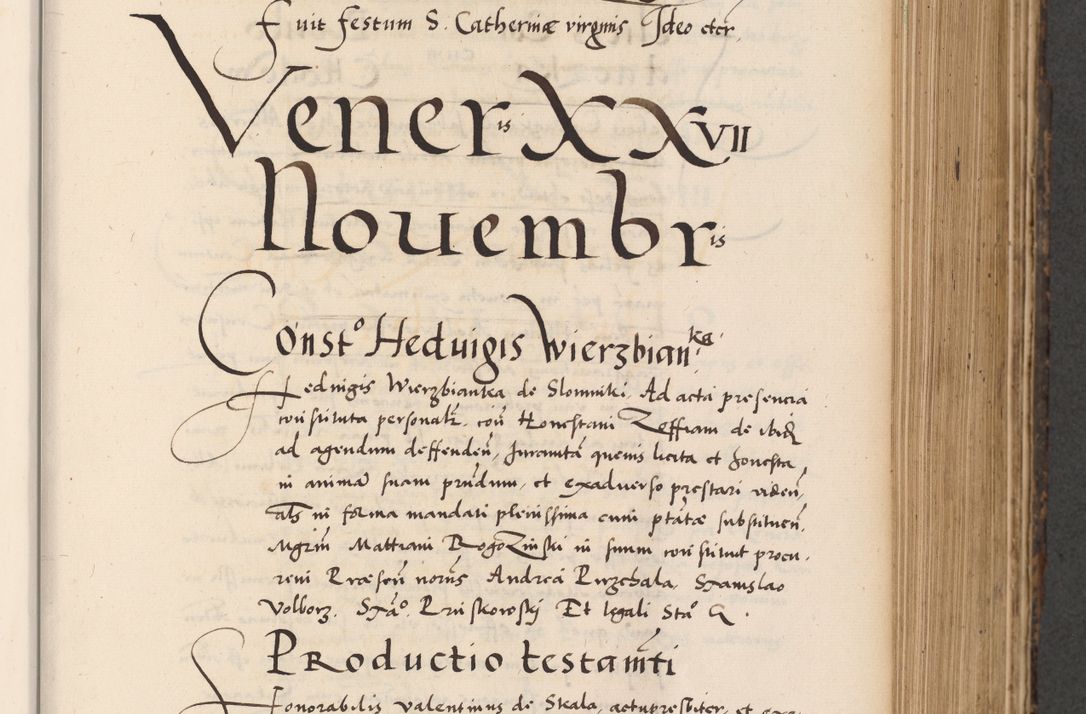 Fuit festum S. Catherinæ virginis Ideo etc.
Veneris XXVII
Nouembris
Constº Heduigis Wierzbianka
Heduigis Wierzbianka de Slomniki, Ad acta presencia
constituta personalr. con Honestam Zeffiam de ibid
ad agendum deffenden, Juramta queuis licita et honesta
in anima suam prndum, et exaduerso prestari viden,
als in forma mandati plenissima cum ptate substituen.
Mgrm Mattiam Rogozinski in suum constituit procu.
reni Præsen noribs Andrea Przchala, Stanislao
Volborz. Stao Pruskowskj Et legali Stao G.
Productio testamti
Honorabilis Valentinus de Skala, actupresbiter, et exa